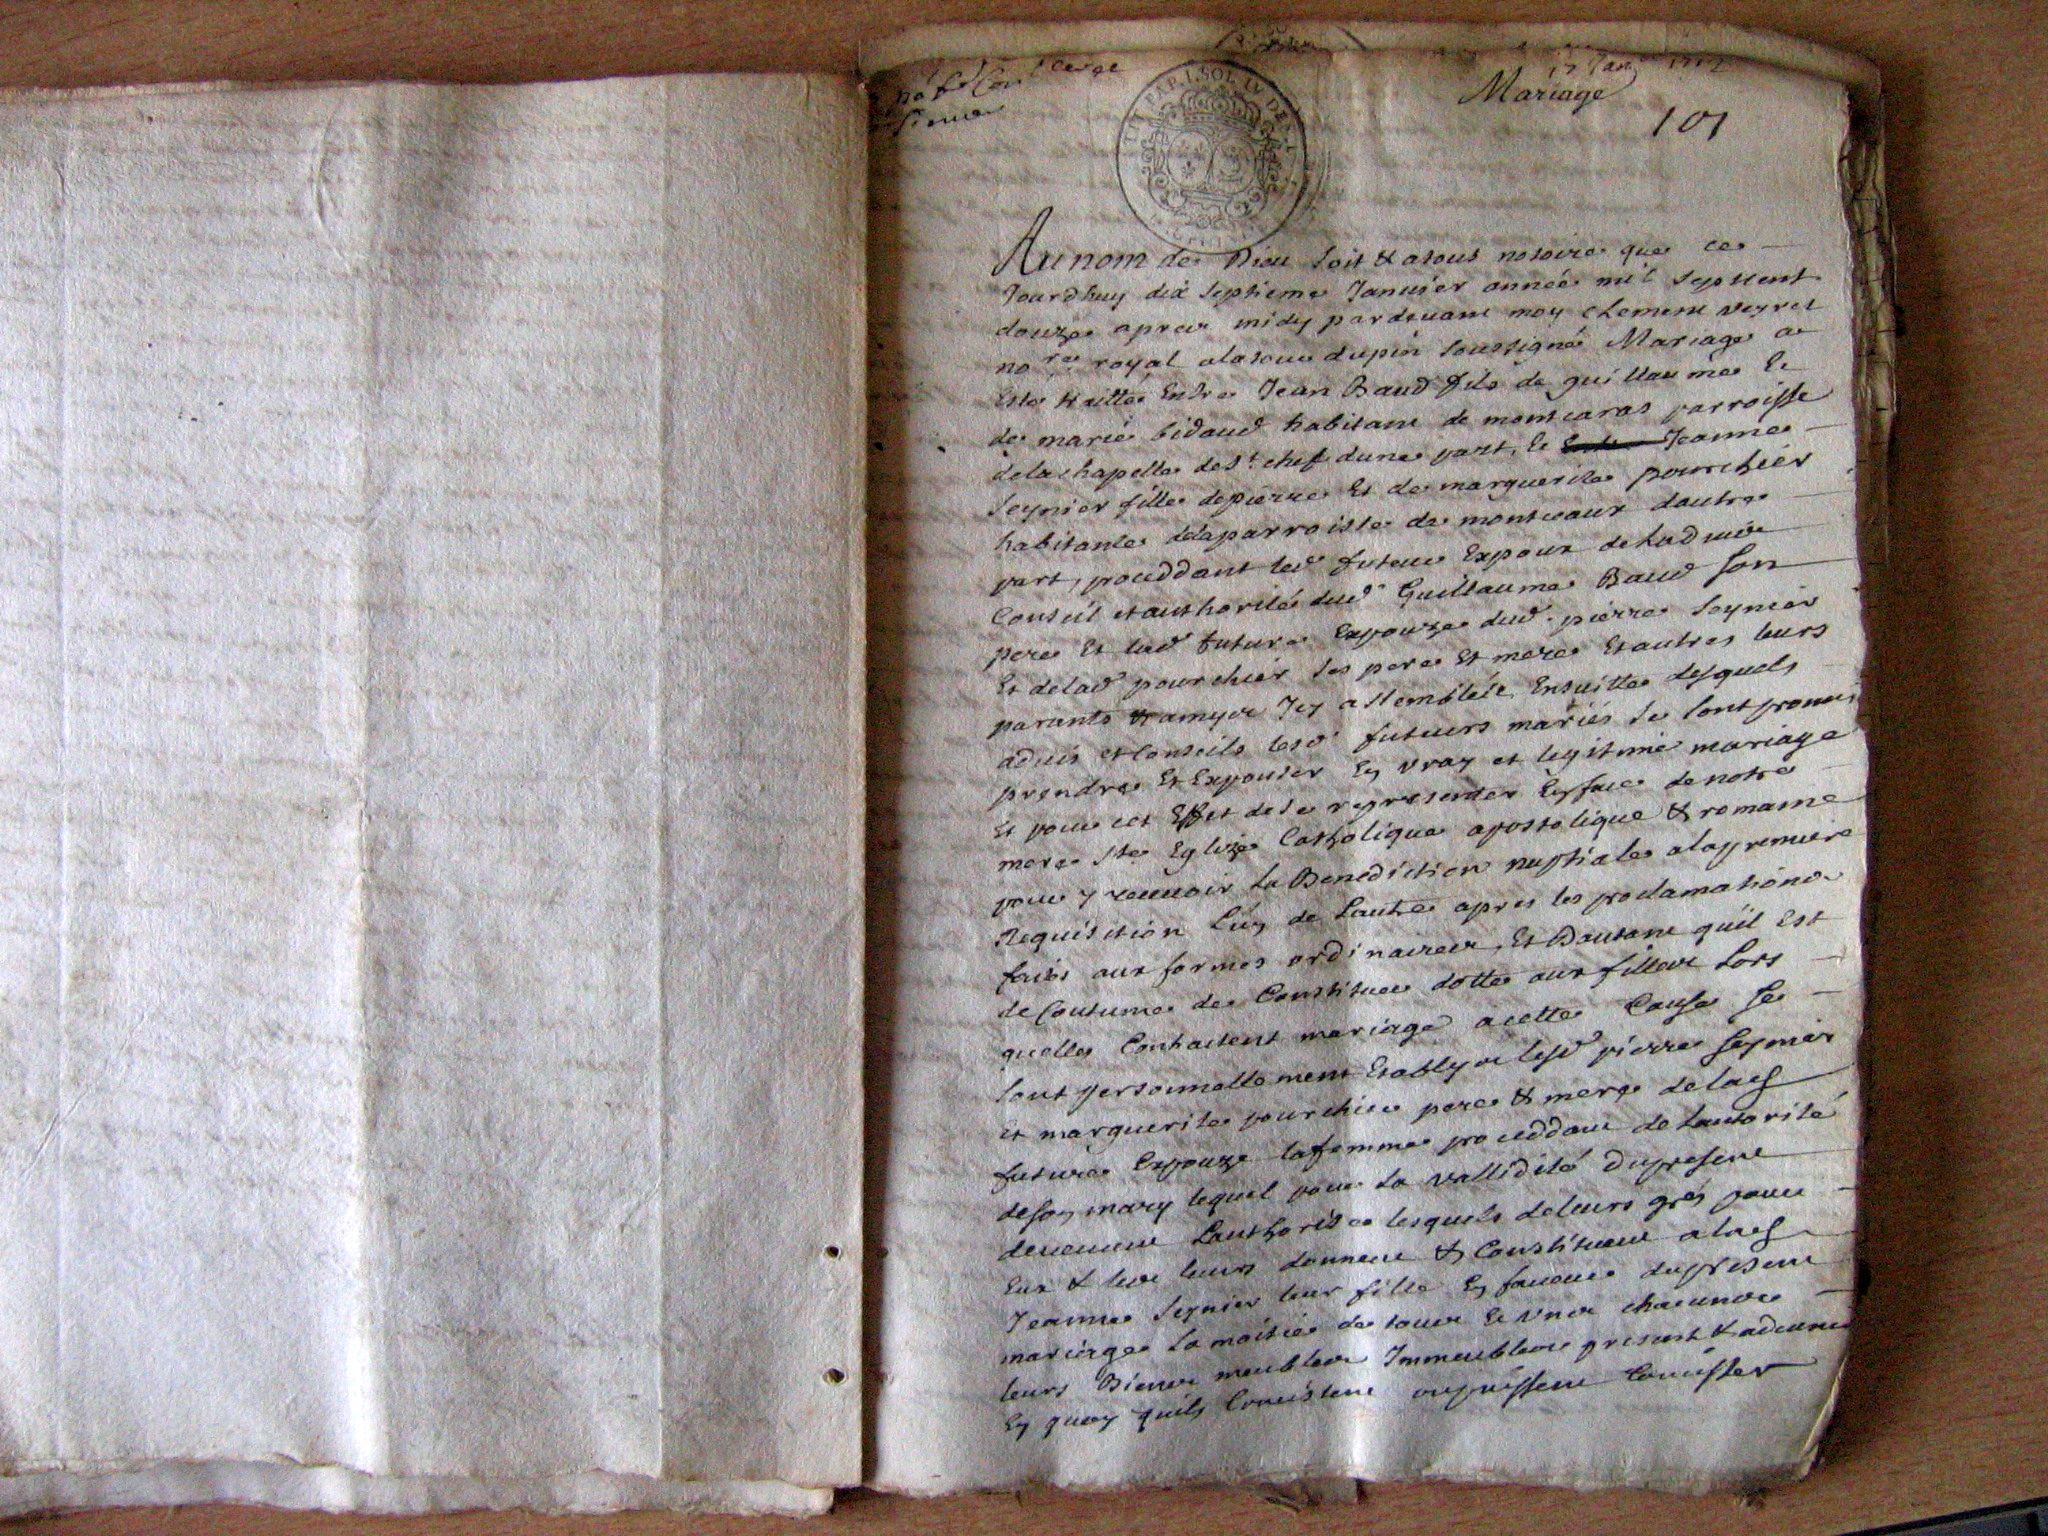 17 Jan 1712
Mariage
101
Au nom de Dieu soit & a tous notoire que ce
Jourdhuy dix septieme Janvier année mil sept cent
douze apres midy pardevant moy Clement Veyret
no.re royal a la tour dupin soussigné Mariage a
Esté traitté Entre Jean Baud fils de guillaume Et
de marie bidaud habitant de montcaras parroisse
de la chapelle de St chef dune part, Et Jeanne
Seynier fille de pierre Et de marguerite pourchier
habitante de la parroisse de montceaux dautre
part, proceddant led futeur Expoux de Ladvis
Conseil et authorité dud Guillaume Baud son
pere Et lad future Expouze dud pierre Seynier
Et de lad pourchier ses pere Et mere Et autres leurs
parants & amys Icy assemblés, Ensuitte desquels
advis et Conseils lesd futeurs mariés se sont promis
prendre Et Expouser En vray et legitime mariage
Et pour cet Effet de se representer En face de notre
mere Ste Eglize Catholique apostolique & romaine
pour y recevoir La Benediction nuptiale a la premiere
Requisition Lun de Lautre apres les proclamations
faites aux formes ordinaires, Et Dautant quil Est
de Coutume de Constituer dotte aux filles Lors
quelles Contractent mariage a cette Cause se
sont personnellement Establys lesd pierre Seynier
et marguerite pourchier pere & mere de lad
future Expouze la femme proceddant de Lautorité
de son mary lequel pour la vallidité du present
deuement Lauthorise lesquels de leurs grés pour
Eux & les leurs donnent & Constituent a lad
Jeanne Seynier leur fille En faveur du present
mariage La moitié de tous Et uns chacuns
leurs Biens meubles Immeubles present & advenir
En quoy quils Consistent ou puissent Consister